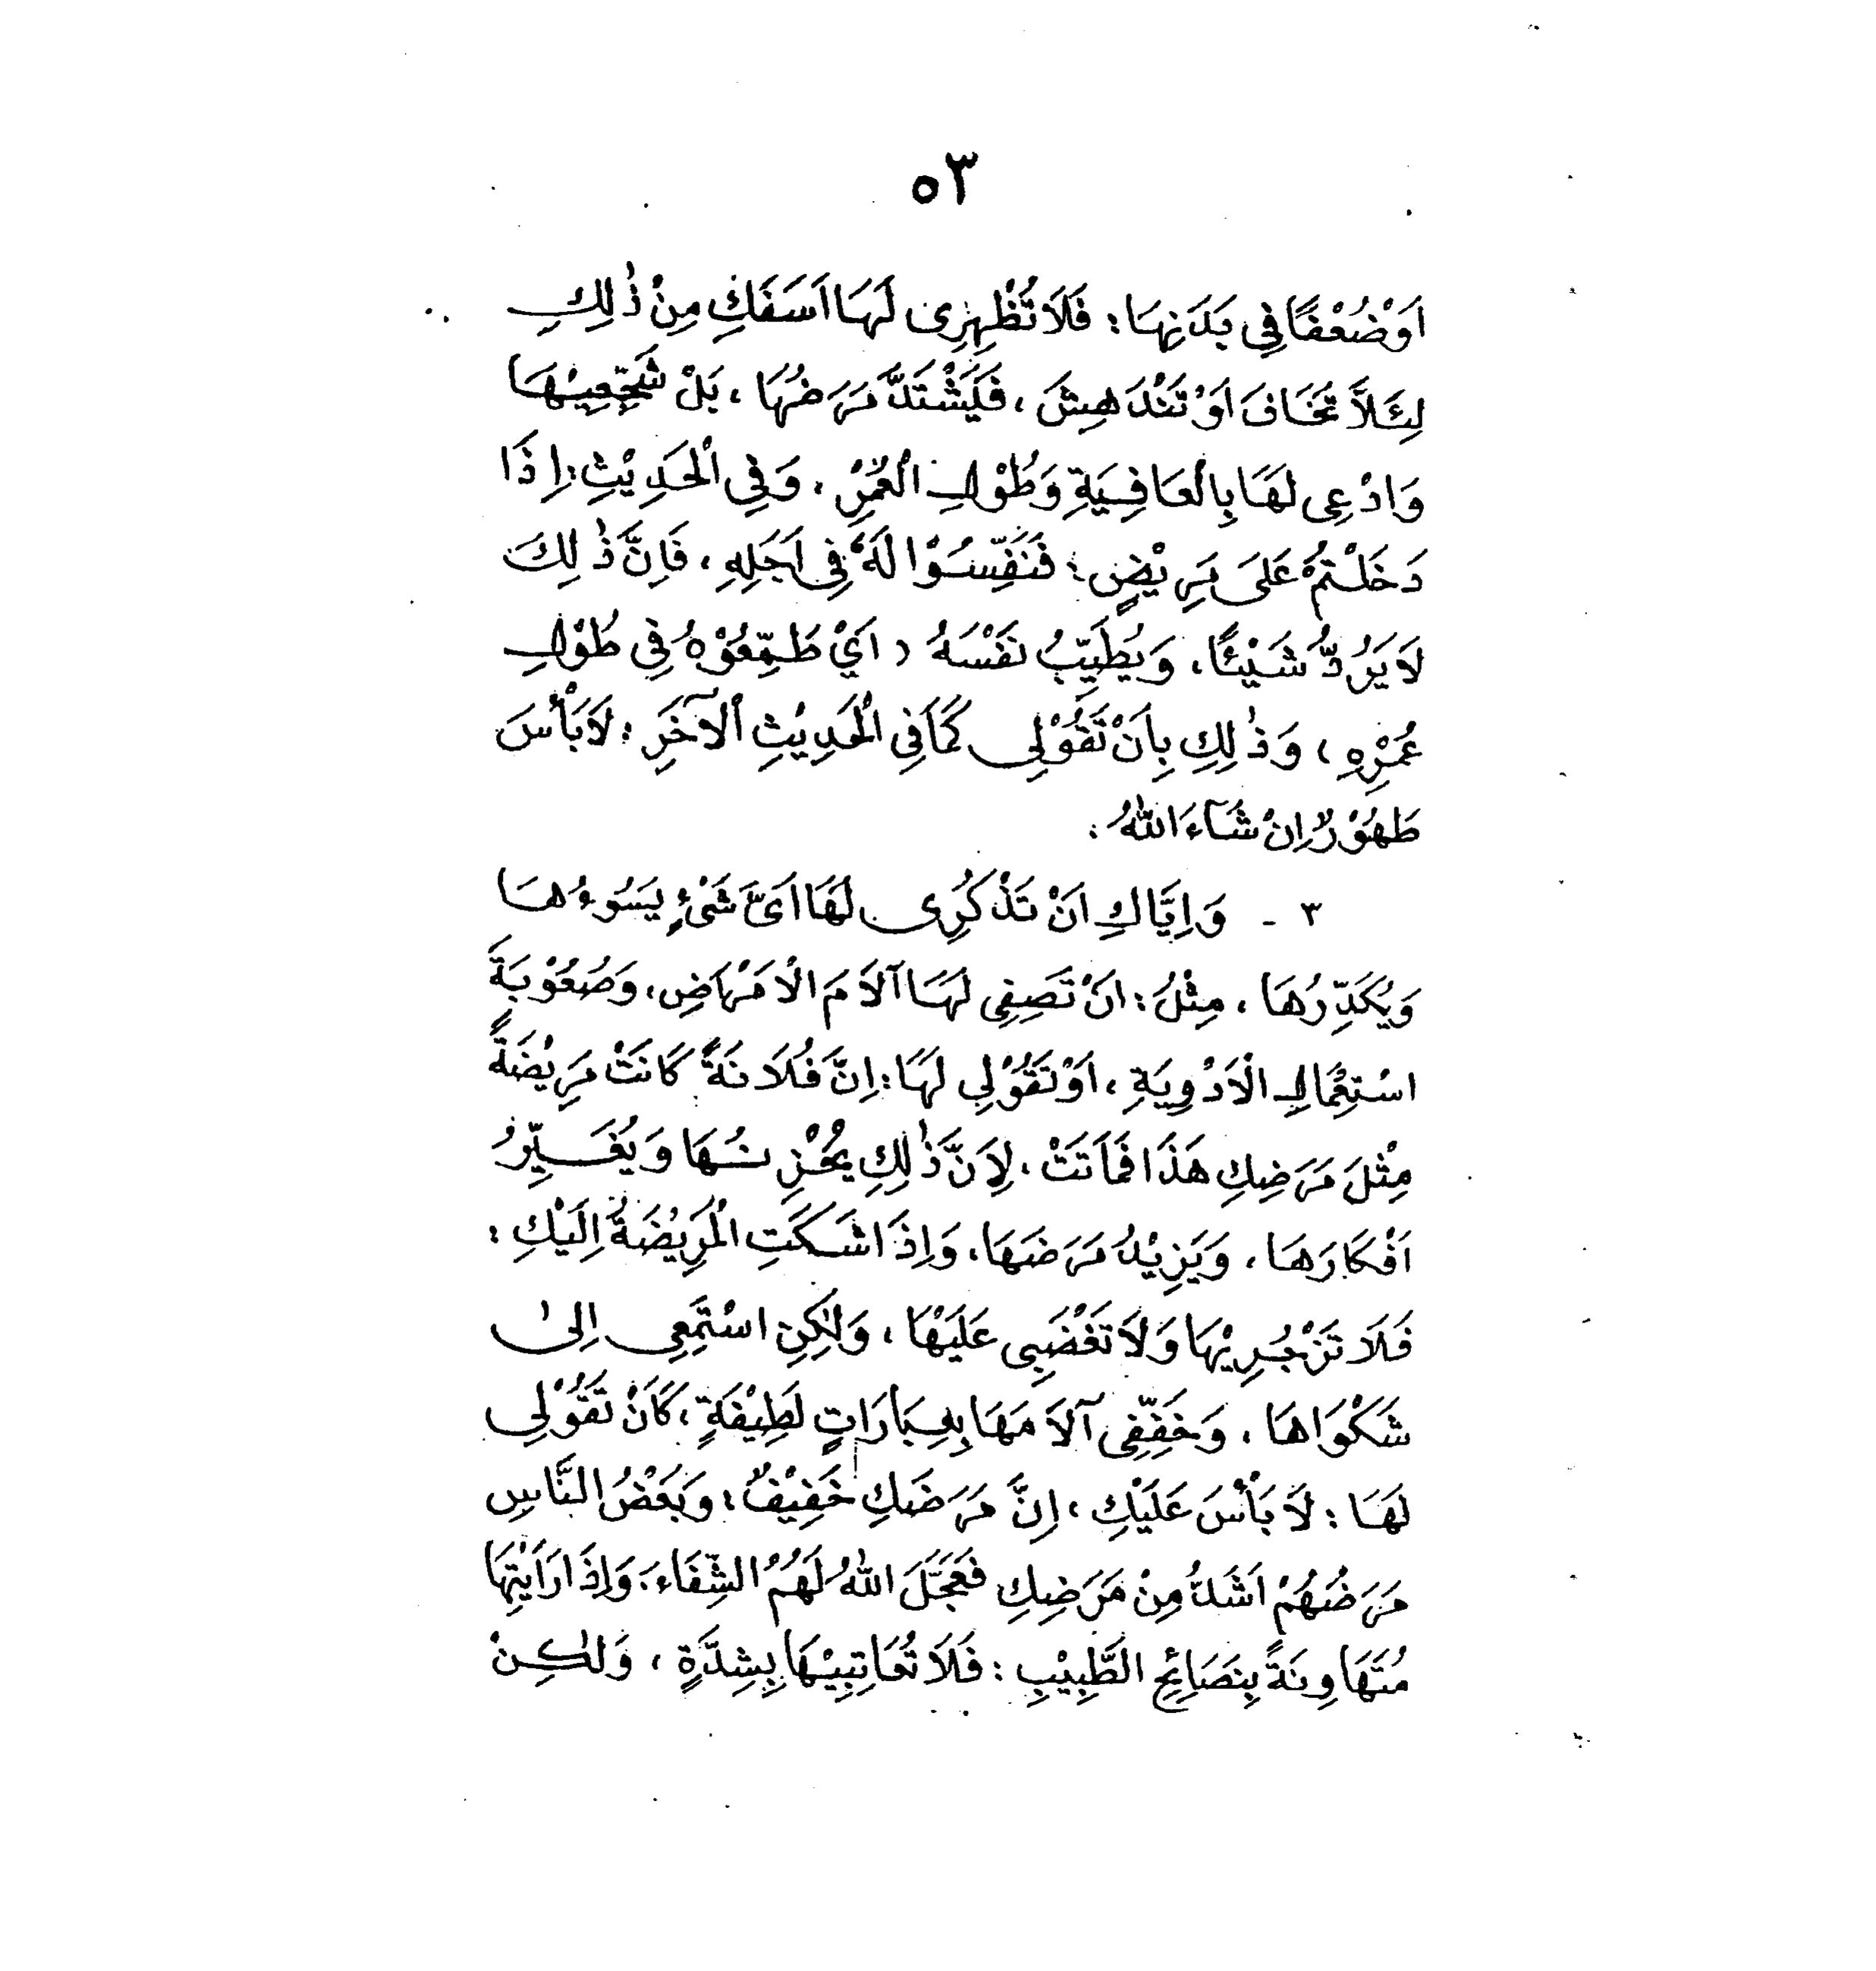 ٥٣
اَوْضُعْفًا فِي بَدَنِهَا : فَلَا تُظْهِرِى لَهَا اَسَفَكِ مِنْ ذٰلِكِ
لِئَلاَّ تَخَافَ اَوْ تَنْدَهِشَ ، فَيَشْتَدَّ مَرَضُهَا ، بَلْ شَجِّعِيْهَا
وَادْعِى لَهَا بِالْعَافِيَةِ وَطُوْلِ الْعُمْرِ ، وَفِي الْحَدِيْثِ : اِذَا
دَخَلْتُمْ عَلَى مَرِيْضٍ : فَنَفِّسُوْا لَهُ فِى اَجَلِهِ ، فَاِنَّ ذٰلِكَ
لَا يَرُدُّ شَيْئًا ، وَيُطَيِّبُ نَفْسَهُ ، اَيْ طَمِّعُوْهُ فِي طُوْلِ
عُمْرِهِ ، وَذٰلِكِ بِاَنْ تَقُوْلِى كَمَا فِي الْحَدِيْثِ اْلآخَرِ : لَا بَأْسَ
طَهُوْرٌ اِنْ شَآءَ اللّٰهُ .
٣ - وَاِيَّاكِ اَنْ تَذْكُرِى لَهَا اَىَّ شَىْءٍ يَسُوْءُهَا
وَيُكَدِّرُهَا ، مِثْلُ : اَنْ تَصِفِى لَهَا آلَامَ الْاَمْرَاضِ ، وَصُعُوْبَةَ
اسْتِعْمَالِ الْاَدْوِيَةِ ، اَوْ تَقُوْلِي لَهَا : اِنَّ فُلَانَةً كَانَتْ مَرِيْضَةً
مِثْلَ مَرَضِكِ هَذَا فَمَاتَتْ ، لِاَنَّ ذٰلِكِ يُحْزِنُهَا وَيُغَيِّرُ
اَفْكَارَهَا ، وَيَزِيْدُ مَرَضَهَا ، وَاِذَا شَكَتِ الْمَرِيْضَةُ اِلَيْكِ :
فَلَا تَزْجُرِيْهَا وَلَا تَغْضَبِى عَلَيْهَا ، وَلٰكِنِ اسْتَمِعِى اِلىٰ
شَكْوَاهَا ، وَخَفِّفِى آلاَمَهَا بِعِبَارَاتٍ لَطِيْفَةٍ ، كَاَنْ تَقُوْلِي
لَهَا : لَا بَأْسَ عَلَيْكِ ، اِنَّ مَرَضَكِ خَفِيْفٌ ، وَبَعْضُ النَّاسِ
مَرَضُهُمْ اَشَدُّ مِنْ مَرَضِكِ فَعَجَّلَ اللّٰهُ لَهُمُ الشِّفَاءَ ، وَاِذَا رَاَيْتِهَا
مُتَهَاوِنَةً بِنَصَائِحِ الطَّبِيْبِ : فَلَا تُعَاتِبِيْهَا بِشِدَّةٍ ، وَلٰكِنْ